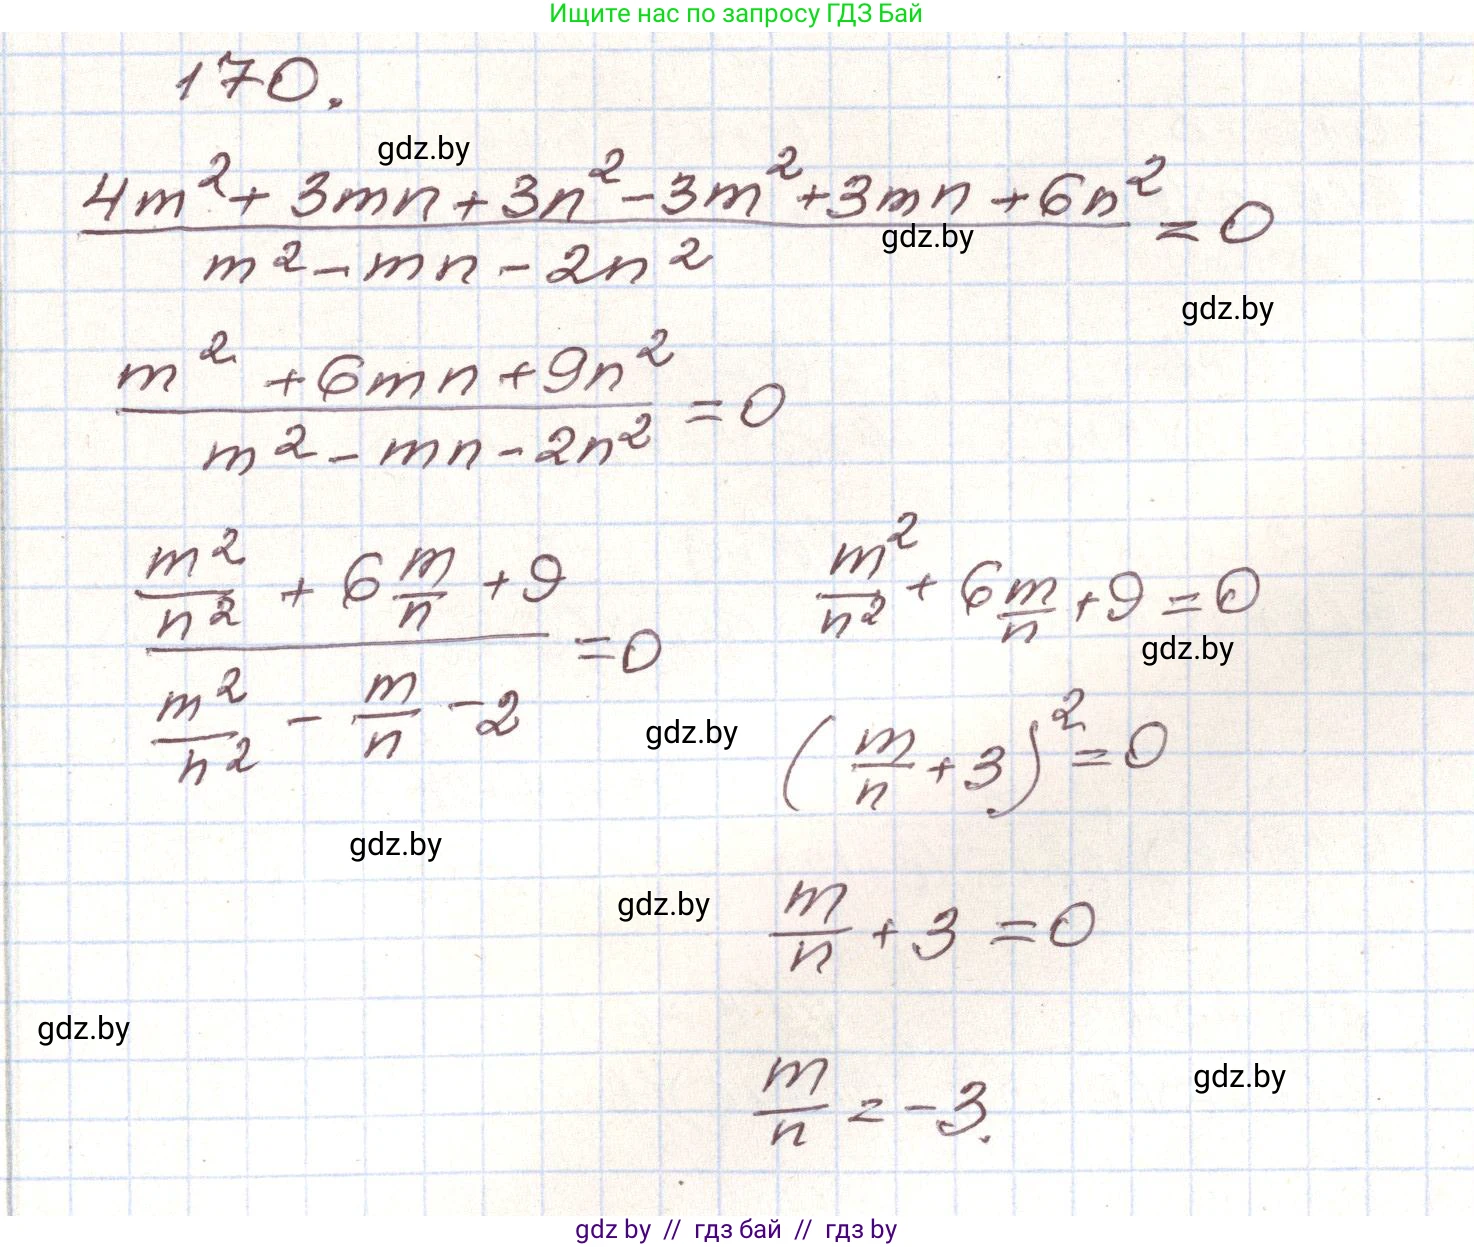 Ищите нас по запросу ГДЗ Бай
170.
gdz.by
4m² + 3mn + 3n² - 3m² + 3mn + 6n² / m² - mn - 2n² = 0
gdz.by
gdz.by
m² + 6mn + 9n² / m² - mn - 2n² = 0
m²/n² + 6 m/n + 9 / m²/n² - m/n - 2 = 0
m²/n² + 6 m/n + 9 = 0
gdz.by
gdz.by
(m/n + 3)² = 0
gdz.by
gdz.by
m/n + 3 = 0
gdz.by
gdz.by
m/n = -3.
gdz.by // гдз бай // гдз by